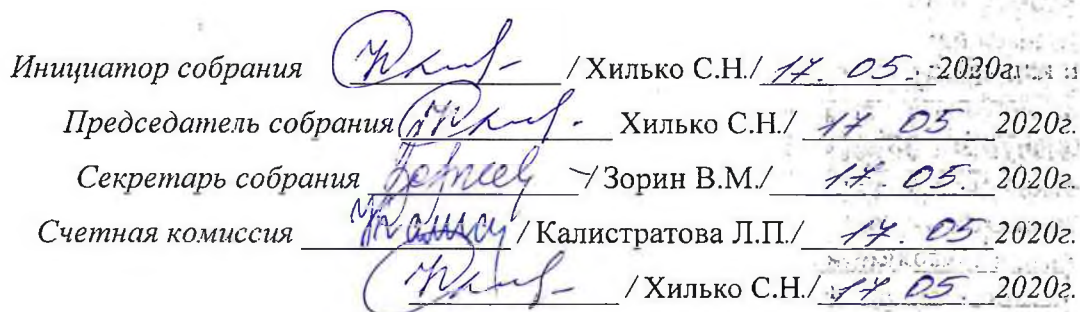 Инициатор собрания / Хилько С.Н./ 17. 05. 2020г.
Председатель собрания Хилько С.Н./ 17. 05 2020г.
Секретарь собрания / Зорин В.М./ 17. 05. 2020г.
Счетная комиссия / Калистратова Л.П./ 17. 05 2020г.
/ Хилько С.Н./ 17. 05. 2020г.